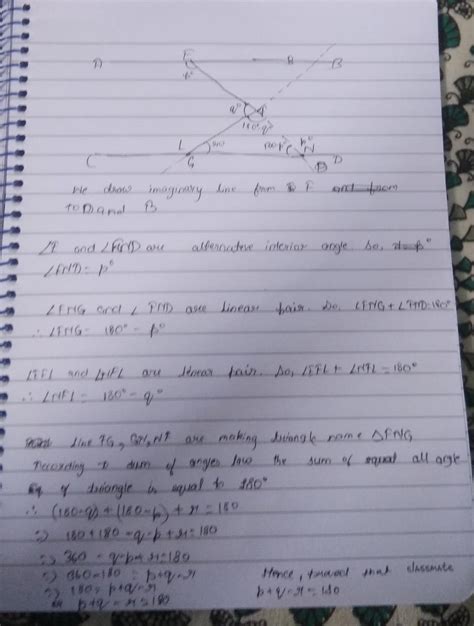 A E B B
p°
q° F
180-q°
L 180-p° p°
C G r° N D
We draw imaginary line from F and from
to D and B
∠E and ∠FND are alternative interior angle. So, p°
∠FND = p°
∠FNG and ∠FND are linear pair. So, ∠FNG + ∠FND = 180°
∴ ∠FNG = 180° - p°
∠EFL and ∠NFL are linear pair. So, ∠EFL + ∠NFL = 180°
∴ ∠NFL = 180° - q°
Line FG, GN, NF are making triangle name ΔFNG
According to sum of angles law the sum of equal all angle
of triangle is equal to 180°
∴ (180-q) + (180-p) + r = 180
=> 180+180-q-p+r=180
=> 360-q-p+r=180
=> 360-180 = p+q-r
=> 180 = p+q-r
p+q-r=180
Hence, proved that
p+q-r=180
classmate